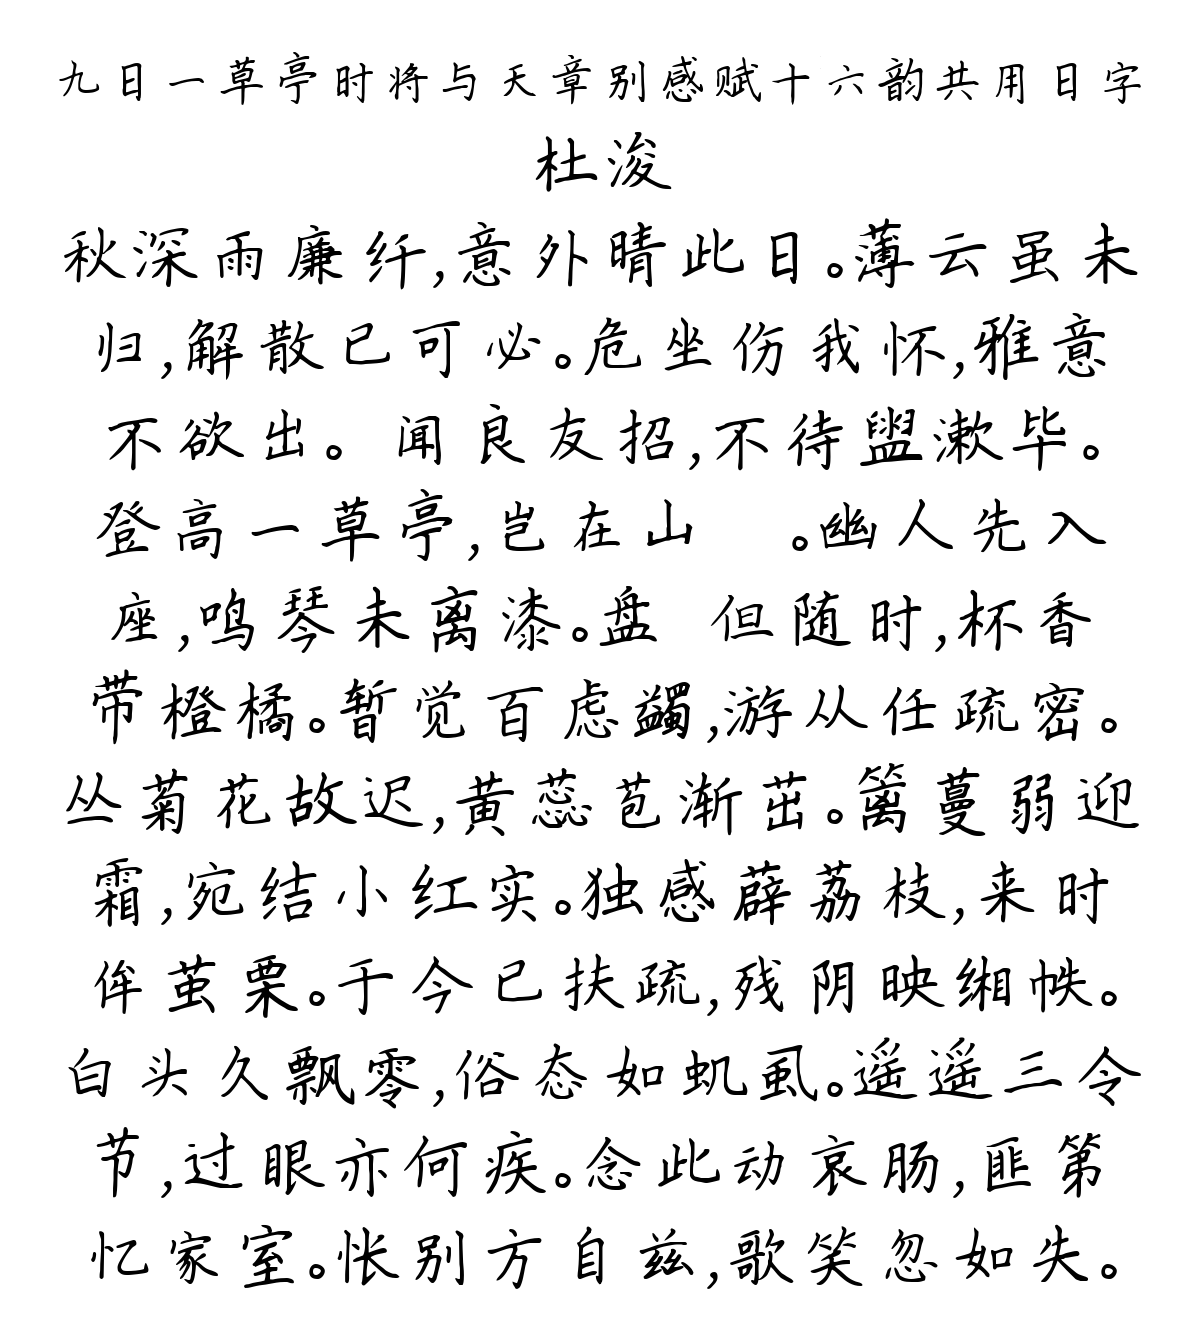 九日一草亭时将与天章别感赋十六韵共用日字
杜浚
秋深雨廉纤,意外晴此日。薄云虽未
归,解散已可必。危坐伤我怀,雅意
不欲出。闻良友招,不待盥漱毕。
登高一草亭,岂在山 。幽人先入
座,鸣琴未离漆。盘 但随时,杯香
带橙橘。暂觉百虑蠲,游从任疏密。
丛菊花故迟,黄蕊苞渐茁。篱蔓弱迎
霜,宛结小红实。独感薜荔枝,来时
侔茧栗。于今已扶疏,残阴映缃帙。
白头久飘零,俗态如虮虱。遥遥三令
节,过眼亦何疾。念此动哀肠,匪第
忆家室。怅别方自兹,歌笑忽如失。